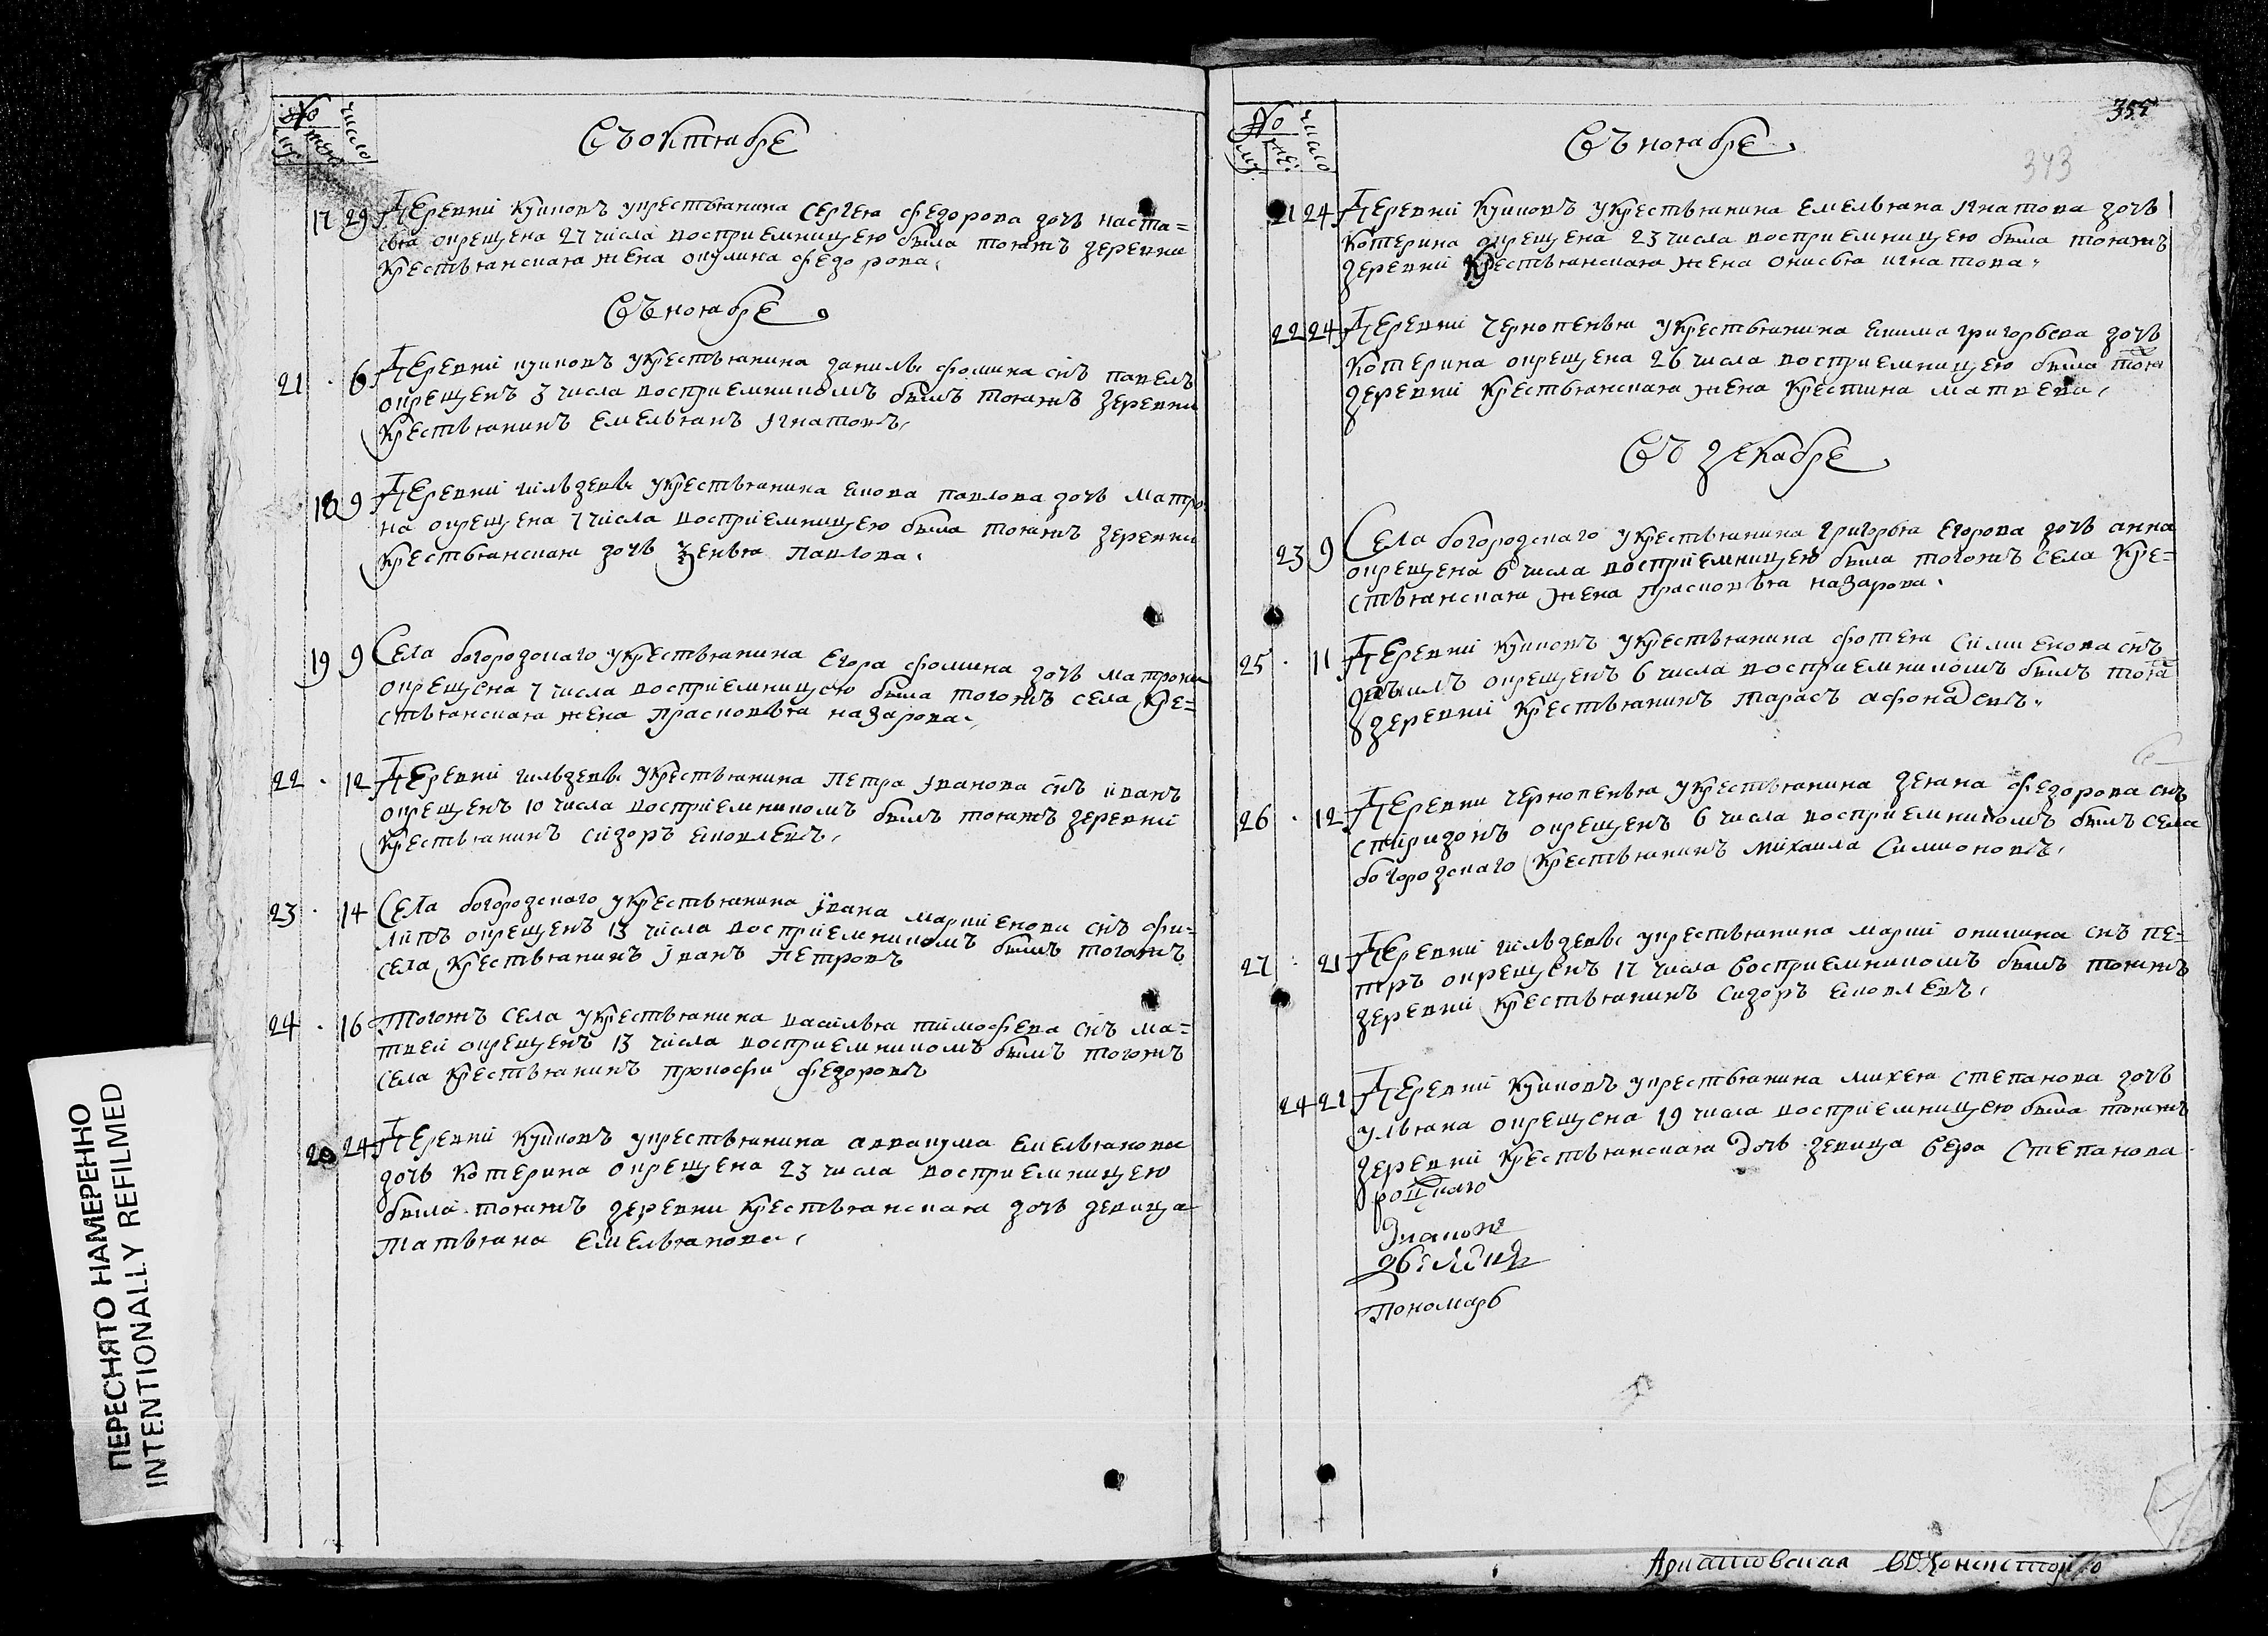 № число
муж: жен:
Въ октябре
17 29 Деревни Куликовъ укрестьянина Сергея федорова дочь Наста=
сья окрещена 27 числа восприемницею была тояжъ деревни
крестьянская жена окулина федорова.
Въ ноябре
21 · 6 Деревни куликовъ укрестьянина данилы фомина снъ павелъ
окрещенъ 3 числа восприемникомъ былъ тояжъ деревни
крестьянинъ Емельянъ Iгнатовъ,
18 9 Деревни укрестьянина екова павлова дочь Матро
на окрещена 7 числа восприемницею была тояжъ деревни
крестьянская дочь павлова.
19 9 Села богородскаго укрестьянина Егора фомина дочь матрона
окрещена 7 числа восприемницею была тогожъ села кре=
стьянская жена прасковья назарова.
22 · 12 Деревни укрестьянина Петра Iванова снъ иванъ
окрещенъ 10 числа восприемникомъ былъ тояжъ деревни
крестьянинъ сидоръ ековлевъ,
23 · 14 Села богородскаго укрестьянина Iвана снъ фи=
липъ окрещенъ 13 числа восприемникомъ былъ тогожъ
села крестьянинъ Iванъ Петровъ
24 · 16 Тогожъ села укрестьянина василья тимофева снъ ма=
твеи окрещенъ 13 числа восприемникомъ былъ тогожъ
села крестьянинъ прокофи федоровъ
20 24 Деревни Куликовъ укрестьянина аввакума Емельянова
дочь Котерина окрещена 23 числа восприемницею
была тояжъ деревни крестьянская дочь девица
Татьяна Емельянова,
355
№ число
муж: жен:
Въ ноябре
343
21 24 Деревни Куликовъ укрестьянина Емельяна Iгнатова дочь
Котерина окрещена 23 числа восприемницею была тояжъ
деревни крестьянская жена онисья игнатова.
22 24 Деревни Чернопенья укрестьянина екима григорьева дочь
Котерина окрещена 26 числа восприемницею была тояжъ
деревни крестьянская жена крестина матвева,
Въ декабре
23 9 Села богородскаго укрестьянина Григорья Егорова дочь анна
окрещена 6 числа восприемницею была тогожъ села кре=
стьянская жена прасковья назарова.
25 · 11 Деревни Куликовъ укрестьянина фотея симиенова снъ
окрещенъ 6 числа восприемникомъ былъ тояжъ
деревни крестьянинъ тарасъ афонасевъ.
26 · 12 Деревни чернопенья укрестьянина деяна федорова снъ
спиридонъ окрещенъ 6 числа восприемникомъ былъ села
богородскаго крестьянинъ михаила Симионовъ,
27 · 21 Деревни укрестьянина снъ пе=
тръ окрещенъ 17 числа восприемникомъ былъ тояжъ
деревни крестьянинъ сидоръ ековлевъ,
24 21 Деревни Куликовъ укрестьянина михея степанова дочь
ульяна окрещена 19 числа восприемницею была тояжъ
деревни крестьянская дочь девица вера степанова
пономарь
ПЕРЕСНЯТО НАМЕРЕННО
INTENTIONALLY REFILMED